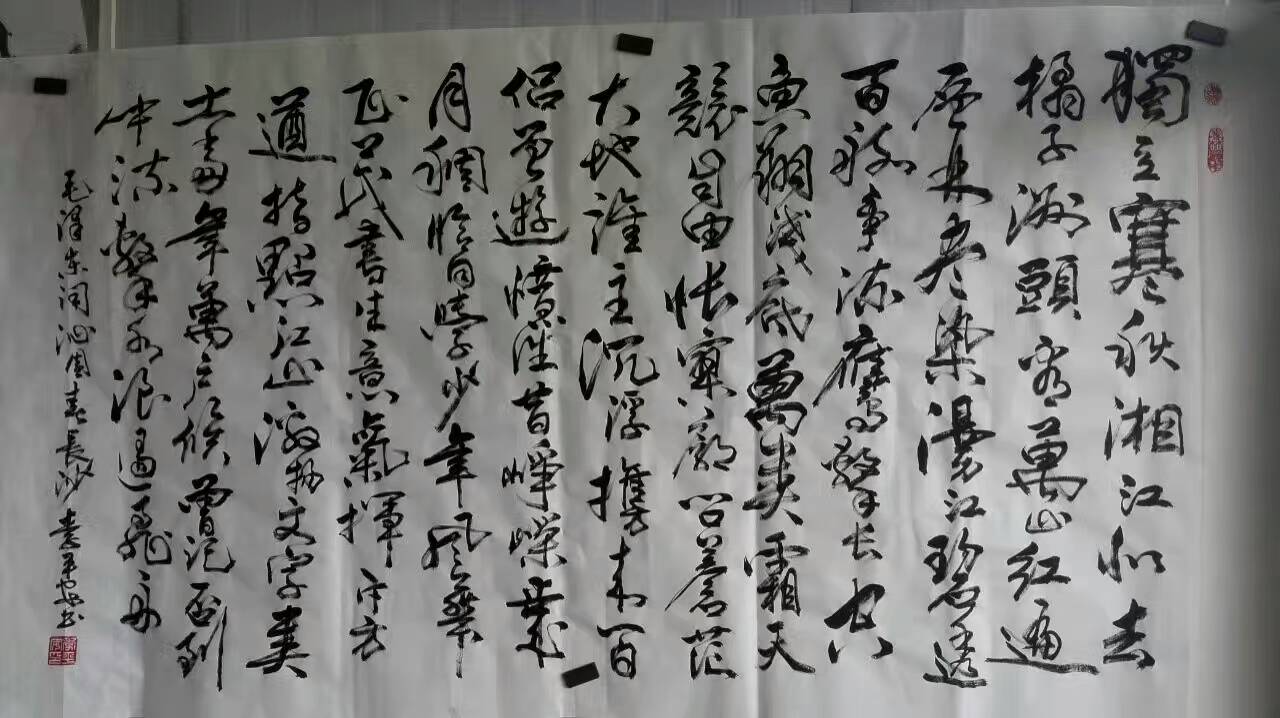 獨立寒秋湘江北去
橘子洲頭看萬山红遍
层林尽染漫江碧透
百舸争流鷹擊长空
魚翔浅底萬类霜天
競自由悵寥廓问蒼茫
大地誰主沉浮攜来百
侣曾遊憶往昔崢嶸歲
月稠恰同學少年风華
正茂書生意氣揮斥方
遒指點江山激扬文字粪
土當年萬户侯曾记否到
中流擊水浪遏飛舟
毛泽东词沁园春長沙